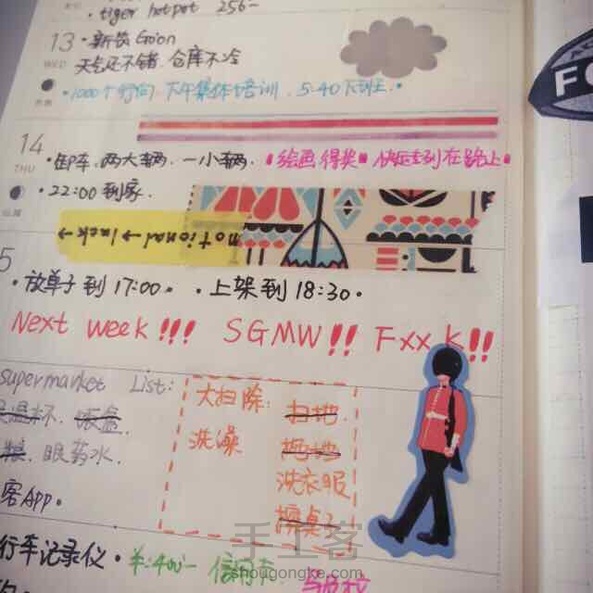 tiger hotpot 256-
13 · 新货 Go'on
WED 天气还不错. 仓库不冷
下午集体培训. 5:40下班.
14
THU · 卸车. 两大车两. 一小车两. 绘画得奖 快运到在路上
· 22:00 到家.
5
· 放单子到 17:00 · · 上架到 18:30 ·
Next week!!! SGMW!! Fxx K!!
supermarket List: 大扫除: 扫地.
保温杯. 饭盒. 洗澡 拖地
眼药水. 洗衣服
客App. 擦桌子
行车记录仪 · 羊:400- 信用卡
手工客
shougongke.com
FO